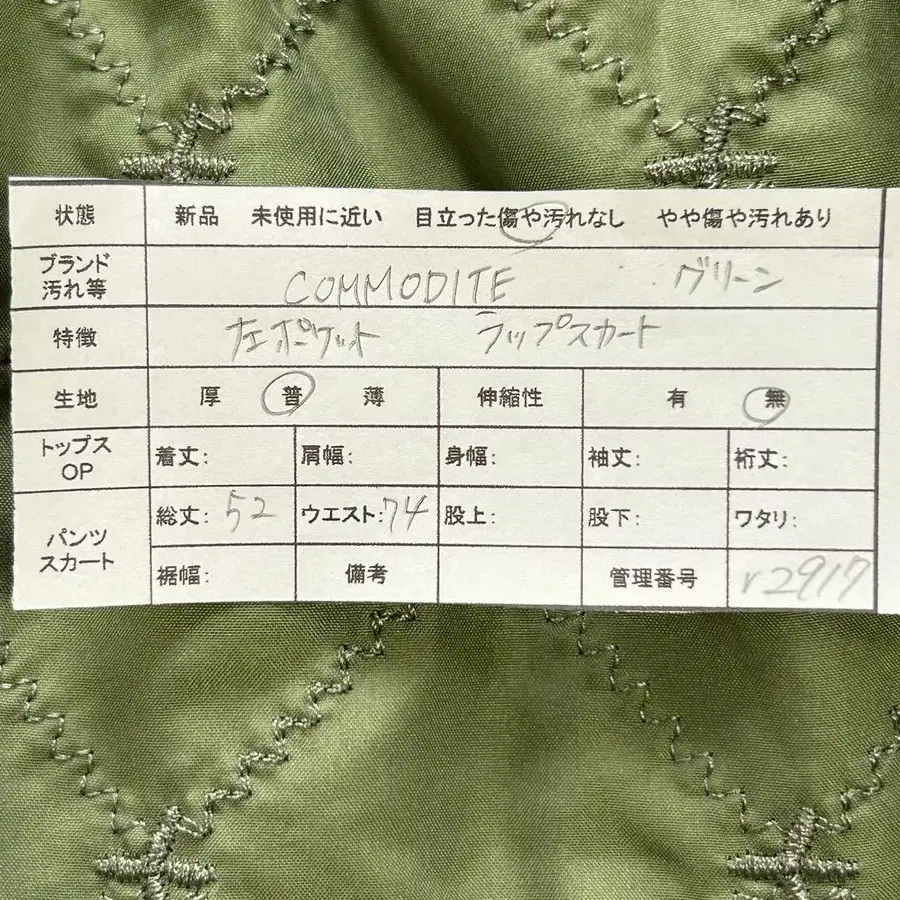 状態 新品 未使用に近い 目立った傷や汚れなし やや傷や汚れあり
ブランド
汚れ等 COMMODITE グリーン
特徴 左ポケット ラップスカート
生地 厚 普 薄 伸縮性 有 無
トップス
OP 着丈: 肩幅: 身幅: 袖丈: 裄丈:
パンツ
スカート 総丈:52 ウエスト:74 股上: 股下: ワタリ:
裾幅: 備考 管理番号 r2917